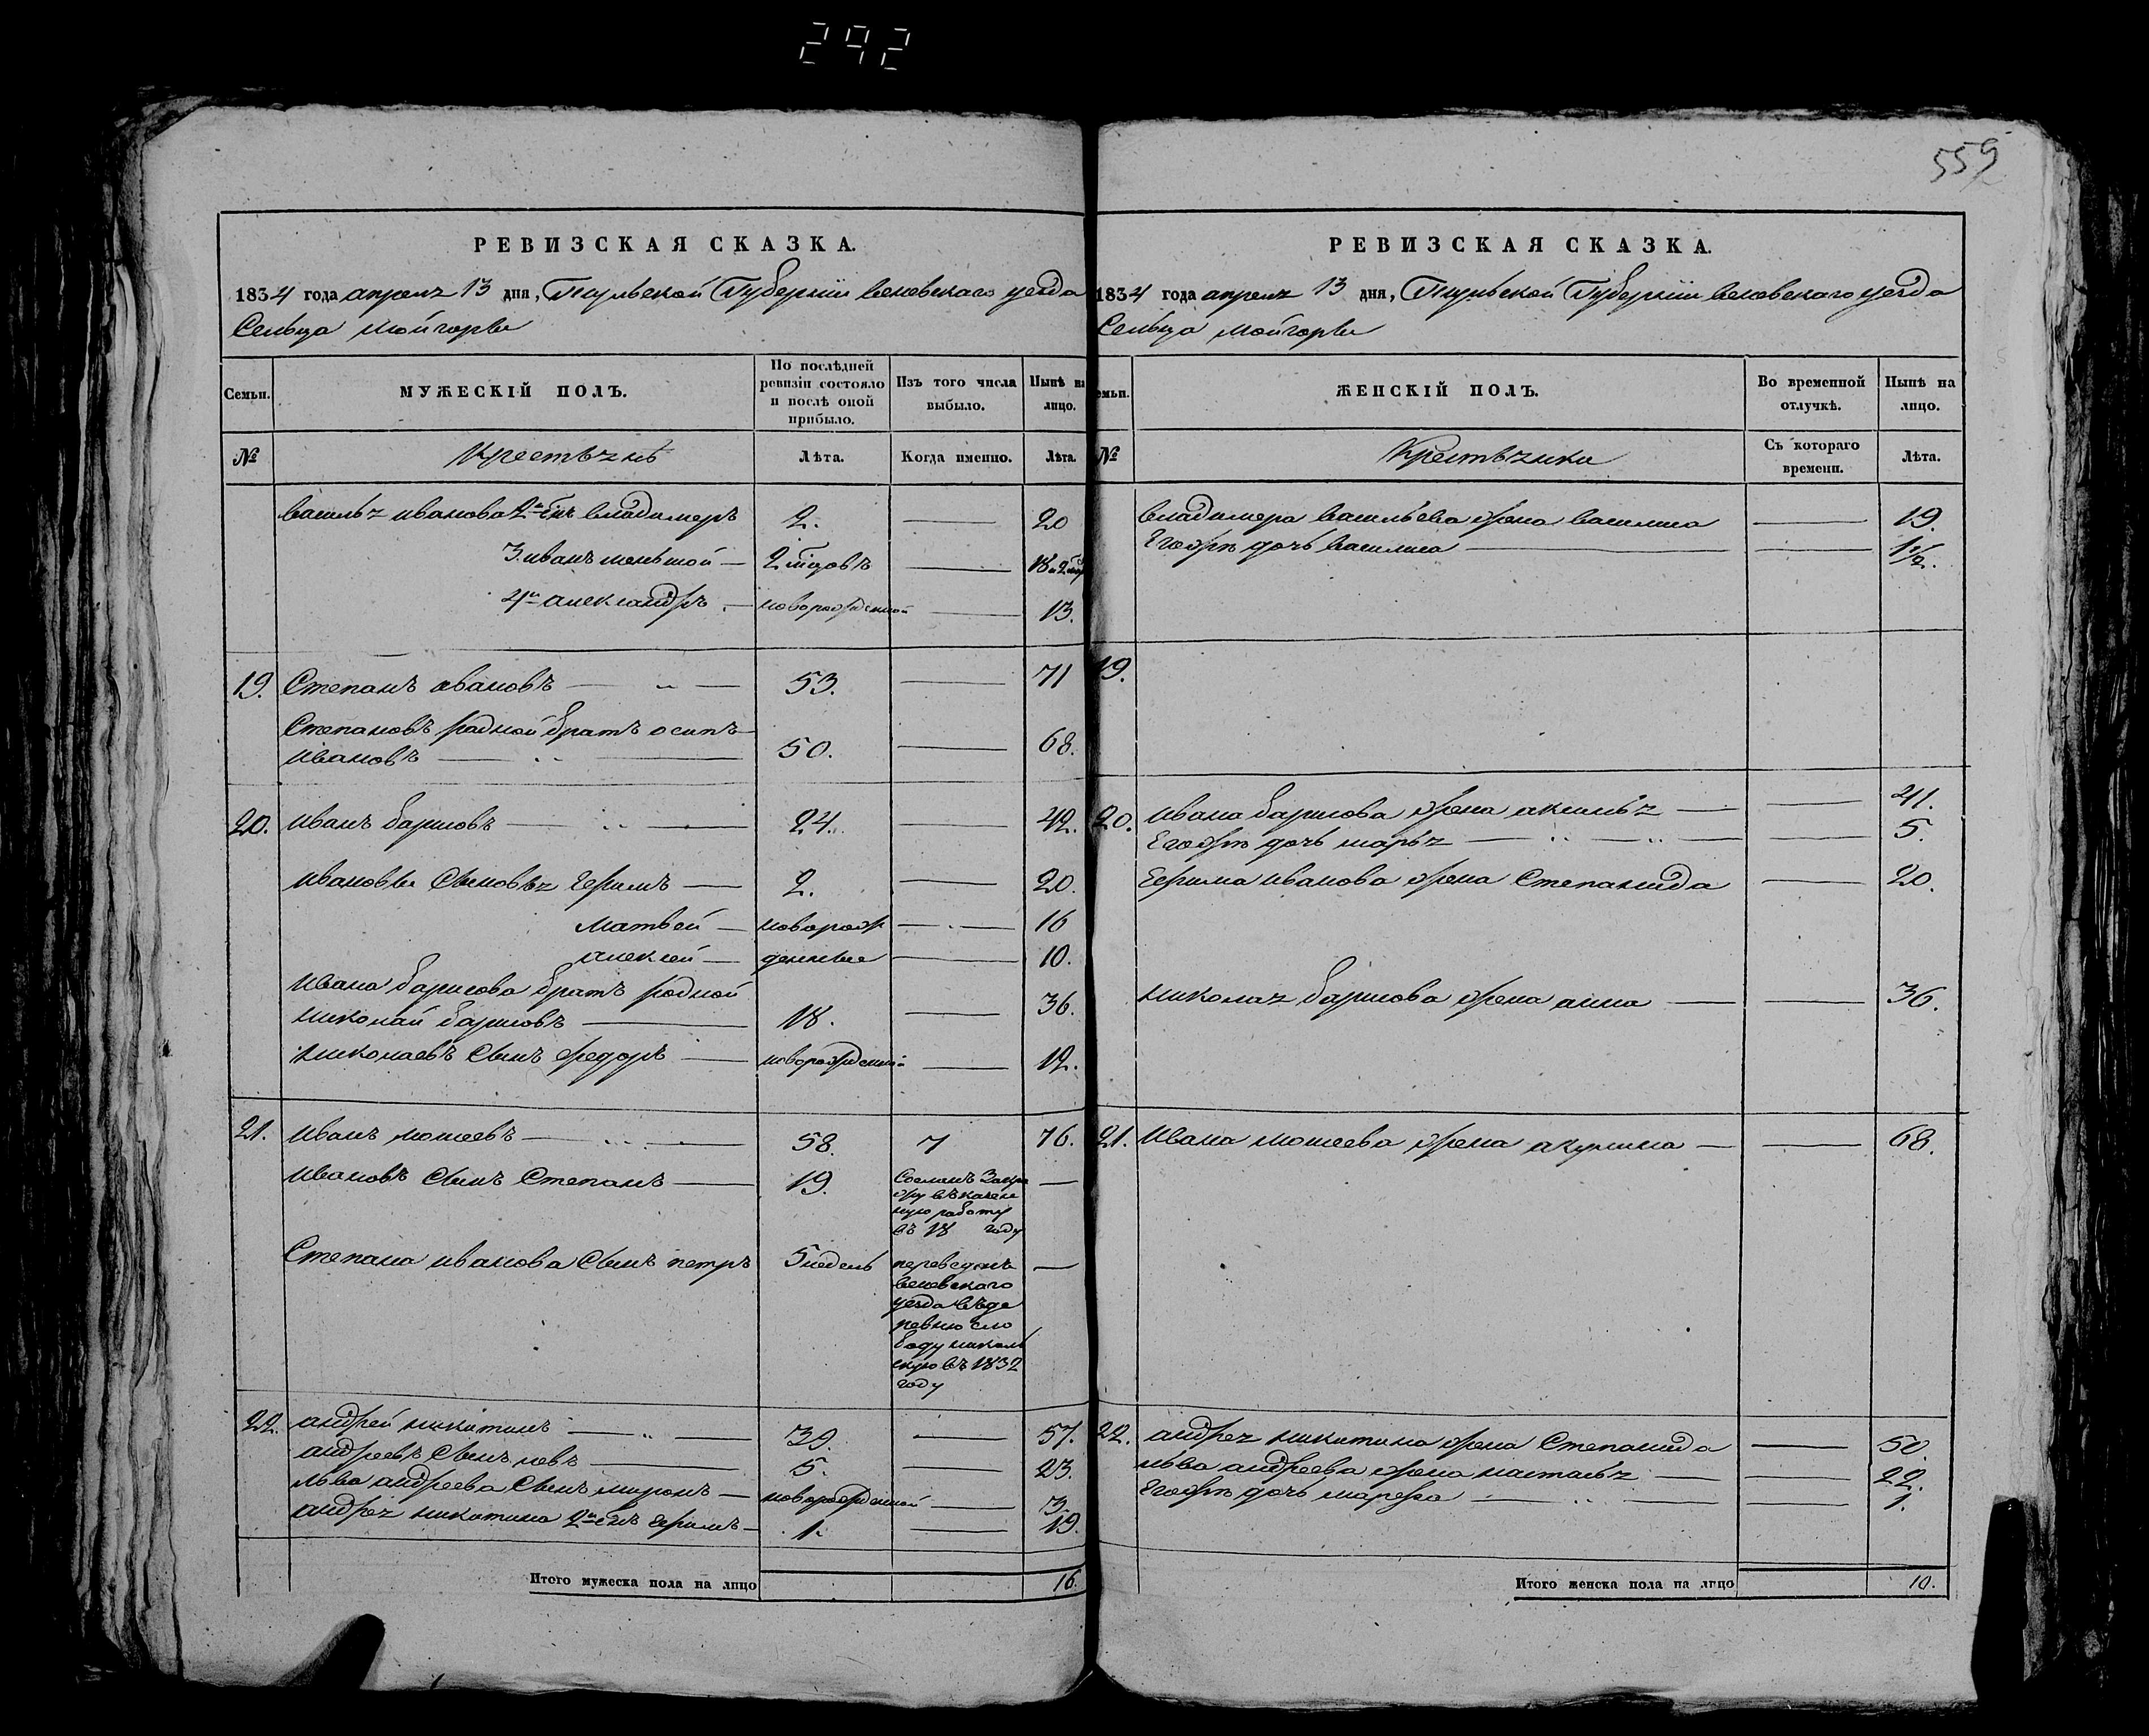 292
559
РЕВИЗСКАЯ СКАЗКА.
1834 года апреля 13 дня, Тульской Губернии Веневского уезда
Сельца Мойгоры
Семьи. МУЖЕСКІЙ ПОЛЪ. По послѣдней ревизіи состояло и послѣ оной прибыло. Изъ того числа выбыло. Нынѣ на лицо.
№ Крестьянѣ Лѣта. Когда именно. Лѣта.
Василья иванова 2й сынъ владимеръ 2. 20
3. иванъ меньшой 2
4й александръ новорожденной 13.
19. Степанъ ивановъ 53. 71
Степановъ родной братъ осипъ
ивановъ 50. 68.
20. иванъ барисовъ 24. 42.
ивановы Сыновья Ефимъ 2. 20.
Матвей новорож 16
алексей денные 10.
ивана барисова братъ родной
николай барисовъ 18. 36.
николаевъ Сынъ федоръ новорожденной 12.
21. иванъ мосеевъ 58. 7 76.
ивановъ Сынъ Степанъ 19. Сосланъ
въ казен
ную работу
въ 18 году
Степана иванова Сынъ петръ 5 недель переведенъ
веневского
уезда въ де
ревню сло
боду николь
скую въ 1832
году
22. андрей никитинъ 39. 57.
андреевъ Сынъ левъ 5. 23.
льва андреева Сынъ миронъ новорожденной 3.
андрея никитина 2й сынъ Ефимъ 1. 19.
Итого мужеска пола на лицо 16.
РЕВИЗСКАЯ СКАЗКА.
1834 года апреля 13 дня, Тульской Губернии Веневского уезда
Сельца Мойгоры
Семьи. ЖЕНСКІЙ ПОЛЪ. Во временной отлучкѣ. Нынѣ на лицо.
№ Крестьянки Съ котораго времени. Лѣта.
владимера васильева жена василиса 19.
Егожъ дочь василиса 1 1/2.
19.
20. ивана барисова жена аксинья 41.
Егожъ дочь марья 5.
Ефима иванова жена Степанида 20.
николая барисова жена анна 36.
21. ивана мосеева жена акулина 68.
22. андрея никитина жена Степанида 50
льва андреева жена настасья 22.
Егожъ дочь марфа 1.
Итого женска пола на лицо 10.